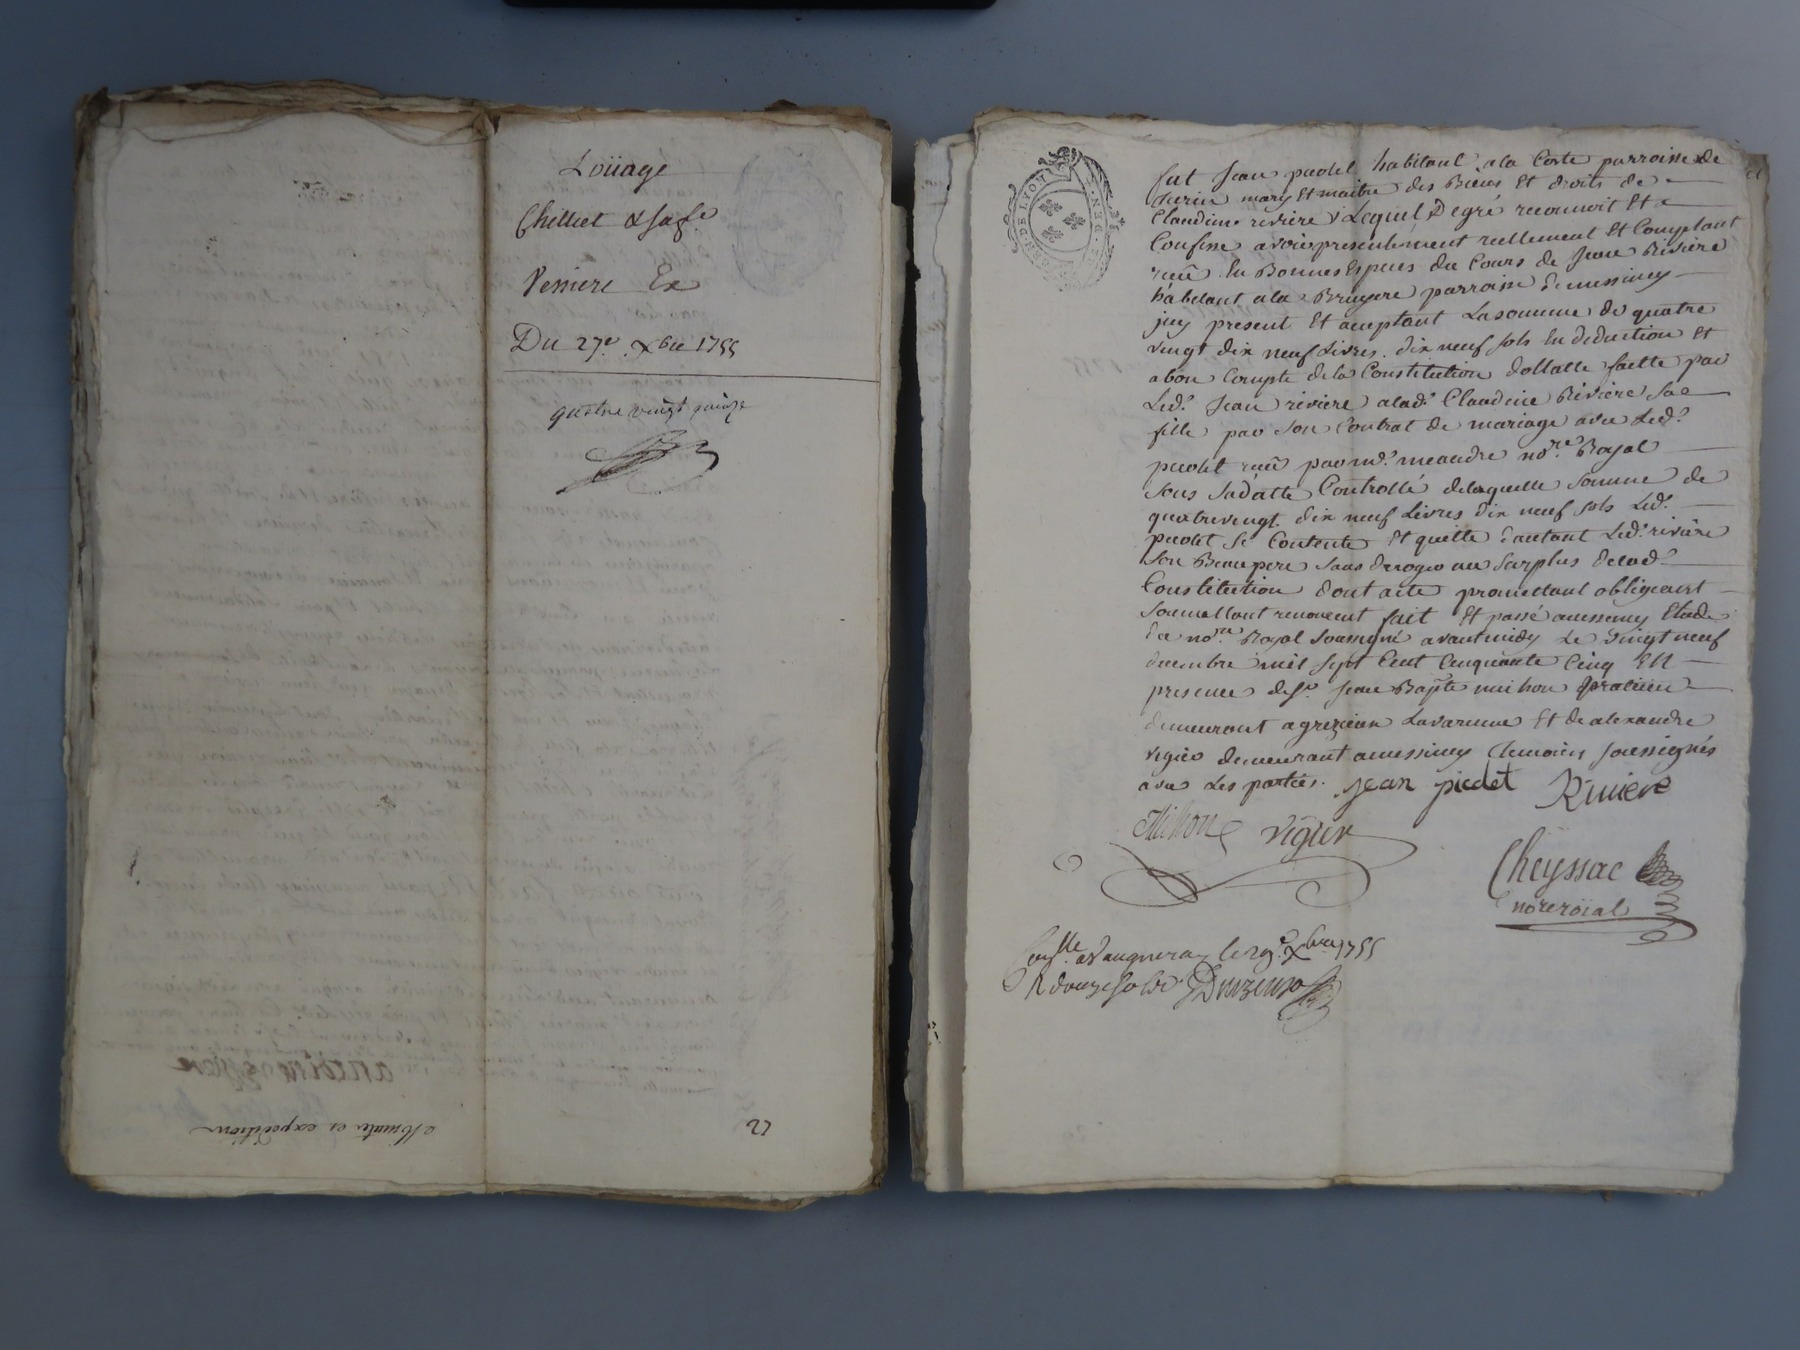 Loüage
Chilliet & sa fe
Pessiere Ex
Du 27e Xbre 1755
quatre vingt quinze
Minute et expedition
27
GEN DE LYON
fut Jean piedet habitant a la Coste parroisse de
mary Et maitre des Biens Et droits de
Claudine riviere Lequel Degré reconnoit Et
Confesse avoir presentement reellement Et Comptant
reçû En Bonnes Especes du Cours de Jean Riviere
habitant a la Bruyere parroisse de messimy
jcy present Et aceptant La somme de quatre
vingt dix neuf Livres dix neuf sols En deduction Et
a bon Compte de la Constitution dottalle faitte par
Led. Jean riviere a lad. Claudine Riviere sa
fille par son Contrat de mariage avec Led.
piedet reçû par me. meandre nore. Royal
sous sa datte Controllé de laquelle somme de
quatre vingt dix neuf Livres dix neuf sols Led.
piedet se Contente Et quitte d'autant Led. riviere
son Beaupere sans deroger au surplus de lad.
Constitution dont acte promettant obligeant
soumettant renonçent fait Et passé a messimy Etude
du nore. Royal soussigné avant midy Le vingt neuf
decembre mil sept Cent Cinquante Cinq En
presence de sr. Jean Bapte mihon praticien
demeurant a grezieu Lavarenne Et de alexandre
vigier demeurant a messimy temoins soussignés
avec Les parties. Jean piedet Riviere
Mihon vigier
Cheyssac
nore roïal
Conlle a Vaugneray le 29e Xbre 1755
R douze sols